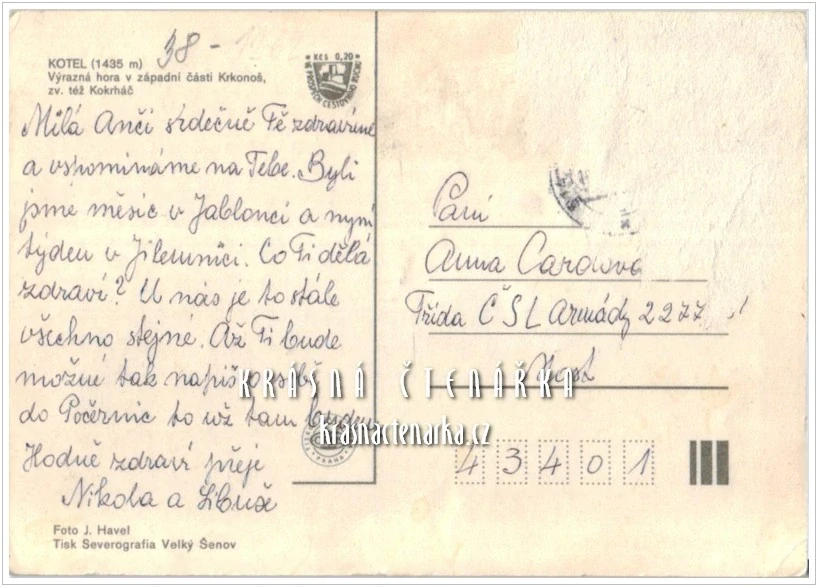 38 -
KOTEL (1435 m)
Výrazná hora v západní části Krkonoš,
zv. též Kokrháč
KČS 0,20
VE PROSPĚCH CESTOVNÍHO RUCHU
Milá Anči srdečně Tě zdravíme
a vspomínáme na Tebe. Byli
jsme měsíc v Jablonci a nyní
týden v Jilemnici. Co Ti dělá
zdraví? U nás je to stále
všechno stejné. Až Ti bude
možné tak napiš o sobě
do Počernic to už tam budem
Hodně zdraví přeje
Nikola a Libuše
Foto J. Havel
Tisk Severografia Velký Šenov
Paní
Anna Cardová
Třída ČSL Armády 2277
Most
43401
KRÁSNÁ ČTENÁŘKA
krasnactenarka.cz
PRAHA